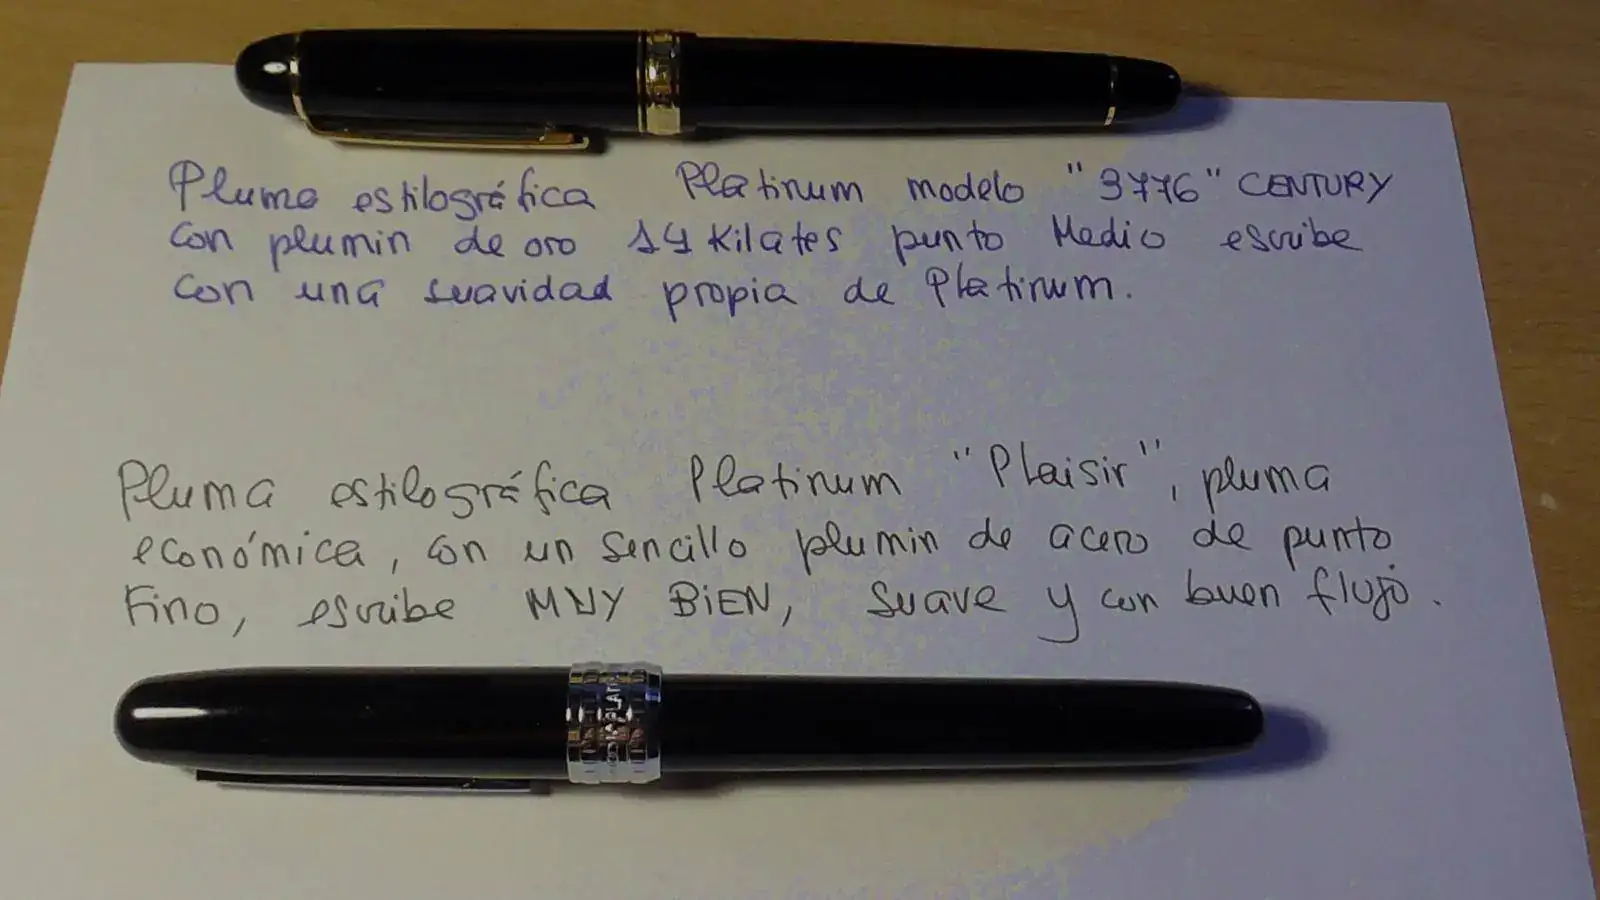 Pluma estilográfica Platinum modelo "3776" CENTURY
con plumin de oro 14 Kilates punto Medio escribe
con una suavidad propia de Platinum.
Pluma estilográfica Platinum "Plaisir", pluma
económica, con un sencillo plumin de acero de punto
Fino, escribe MUY BIEN, suave y con buen flujo.